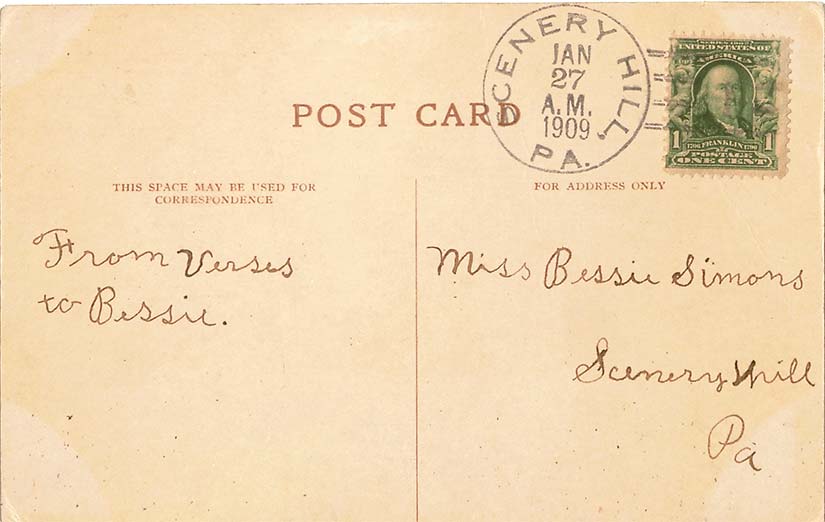 POST CARD
SCENERY HILL, PA.
JAN
27
A.M.
1909
SERIES 1902
UNITED STATES OF
AMERICA
1 1
1706 FRANKLIN 1790
POSTAGE
ONE CENT
THIS SPACE MAY BE USED FOR
CORRESPONDENCE
FOR ADDRESS ONLY
From Verses
to Bessie.
Miss Bessie Simons
Scenery hill
Pa